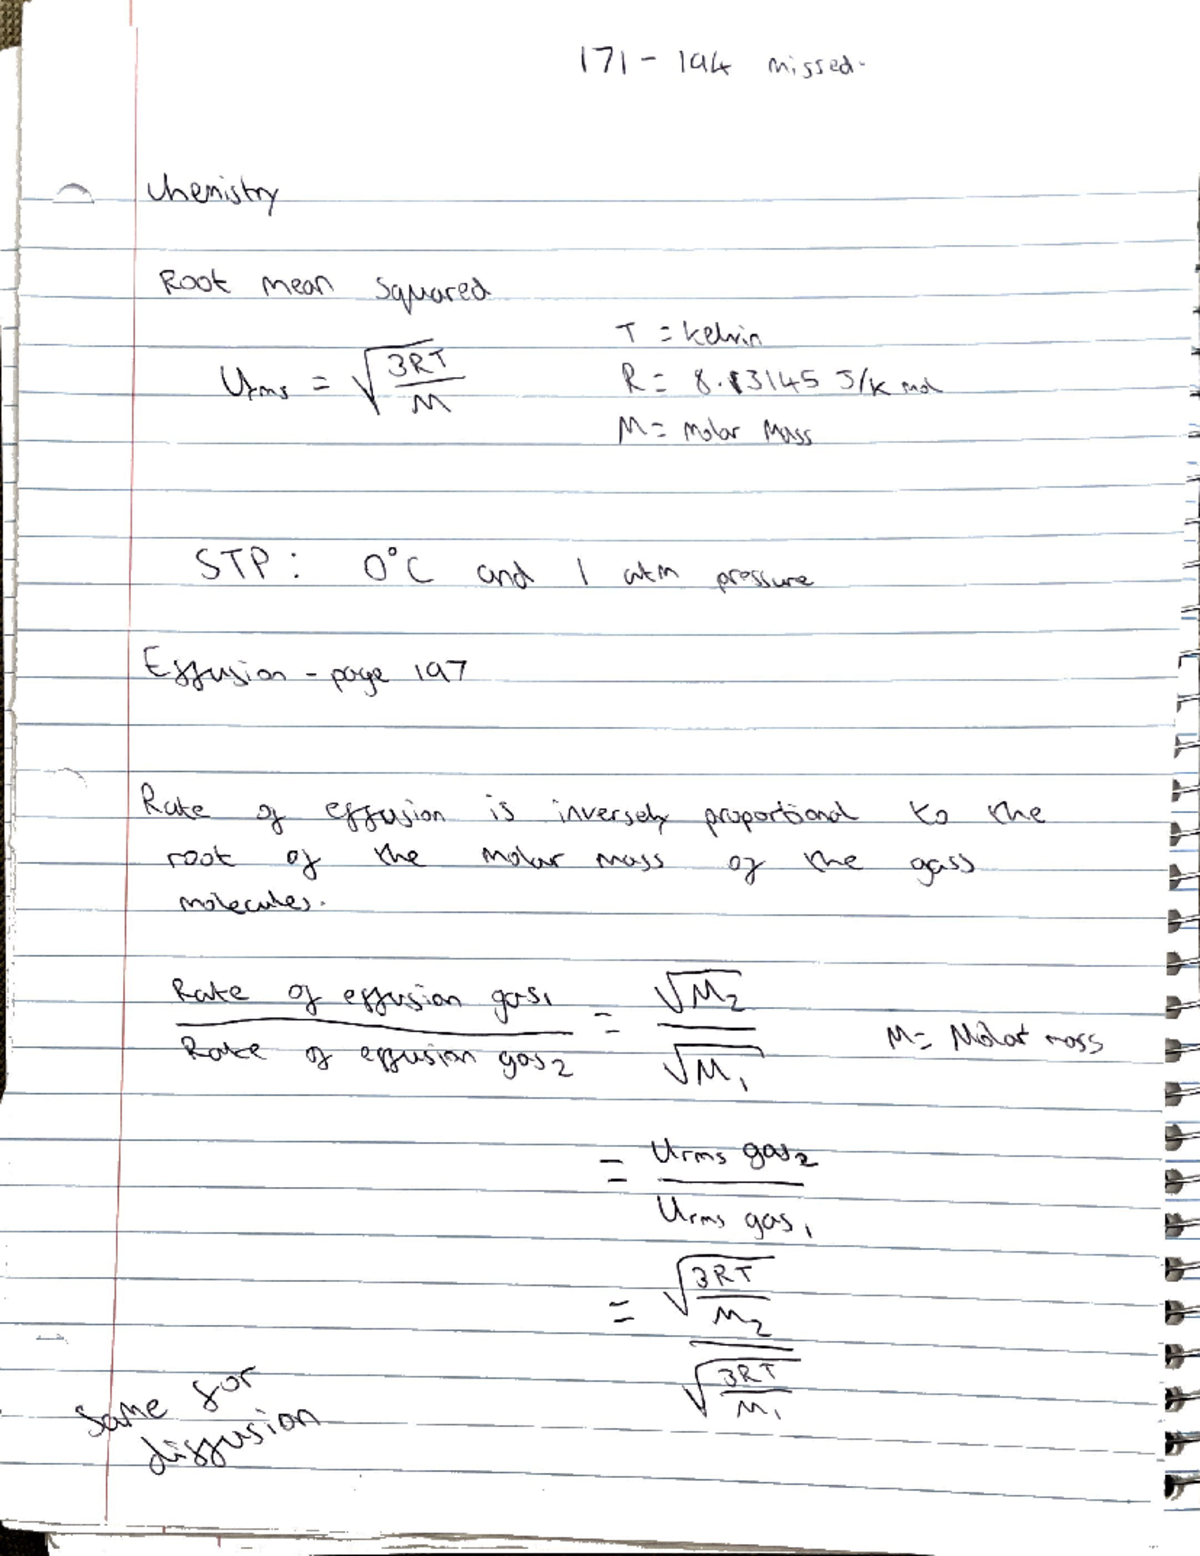 171 - 194 missed.
Chemistry
Root mean squared
Urms = √(3RT/M)
T = kelvin
R = 8.3145 J/K mol
M = Molar Mass
STP: 0°C and 1 atm pressure
Effusion - page 197
Rate of effusion is inversely proportional to the
root of the molar mass of the gass
molecules.
Rate of effusion gas₁ / Rate of effusion gas₂ = √M₂ / √M₁
M = Molar mass
= Urms gas₂ / Urms gas₁
= √(3RT/M₂) / √(3RT/M₁)
same for
diffusion